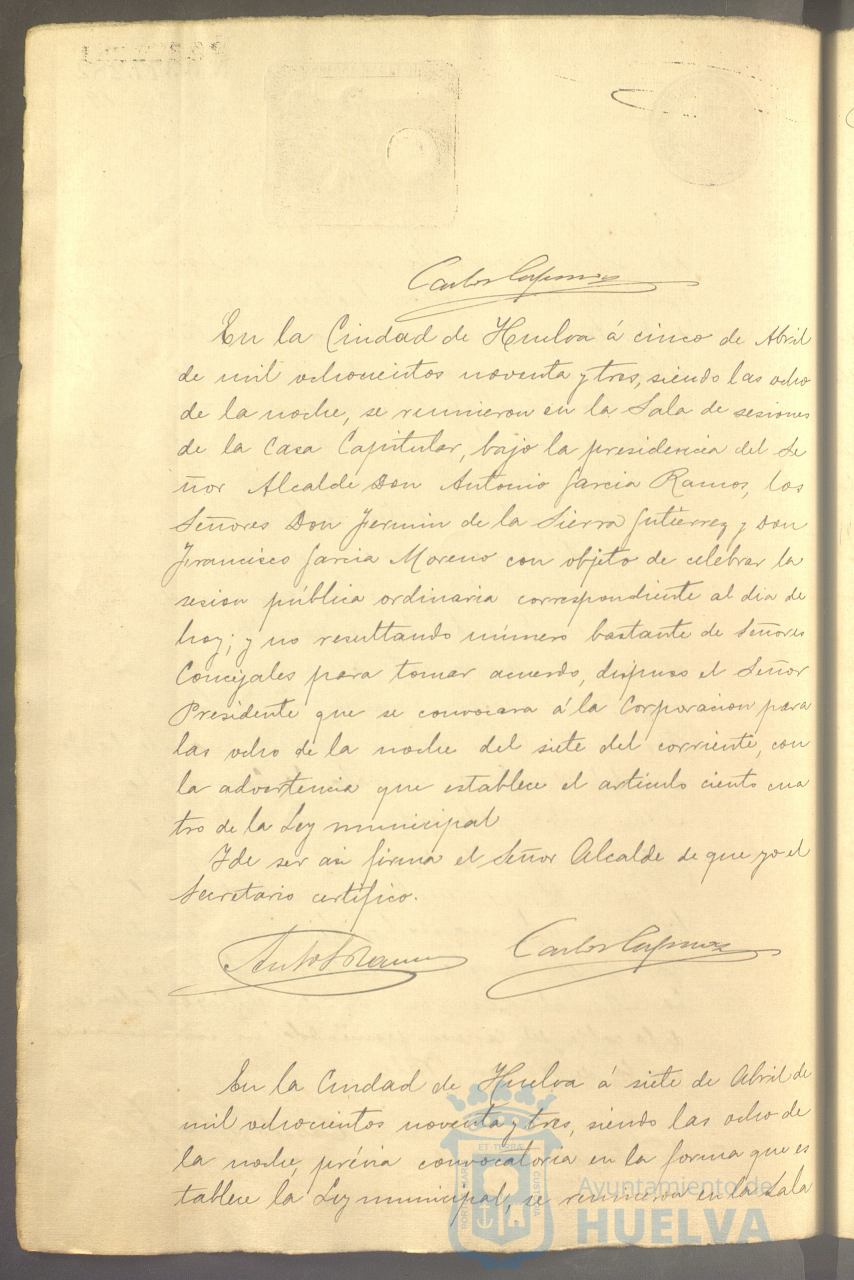 Carlos
En la Ciudad de Huelva á cinco de Abril
de mil ochocientos noventa y tres, siendo las ocho
de la noche, se reunieron en la Sala de sesiones
de la Casa Capitular, bajo la presidencia del Se
ñor Alcalde Don Antonio Garcia Ramos, los
Señores Don Fermin de la Sierra Gutierrez y Don
Francisco Garcia Moreno con objeto de celebrar la
sesion pública ordinaria correspondiente al dia de
hoy; y no resultando número bastante de Señores
Concejales para tomar acuerdo, dispuso el Señor
Presidente que se convocara á la Corporacion para
las ocho de la noche del siete del corriente, con
la advertencia que establece el artículo ciento cua
tro de la Ley municipal
Y de ser asi firma el Señor Alcalde de que yo el
Secretario certifico.
Carlos
En la Ciudad de Huelva á siete de Abril de
mil ochocientos noventa y tres, siendo las ocho de
la noche, prévia convocatoria en la forma que es
tablece la Ley municipal, se reunieron en la Sala
Ayuntamiento de
HUELVA